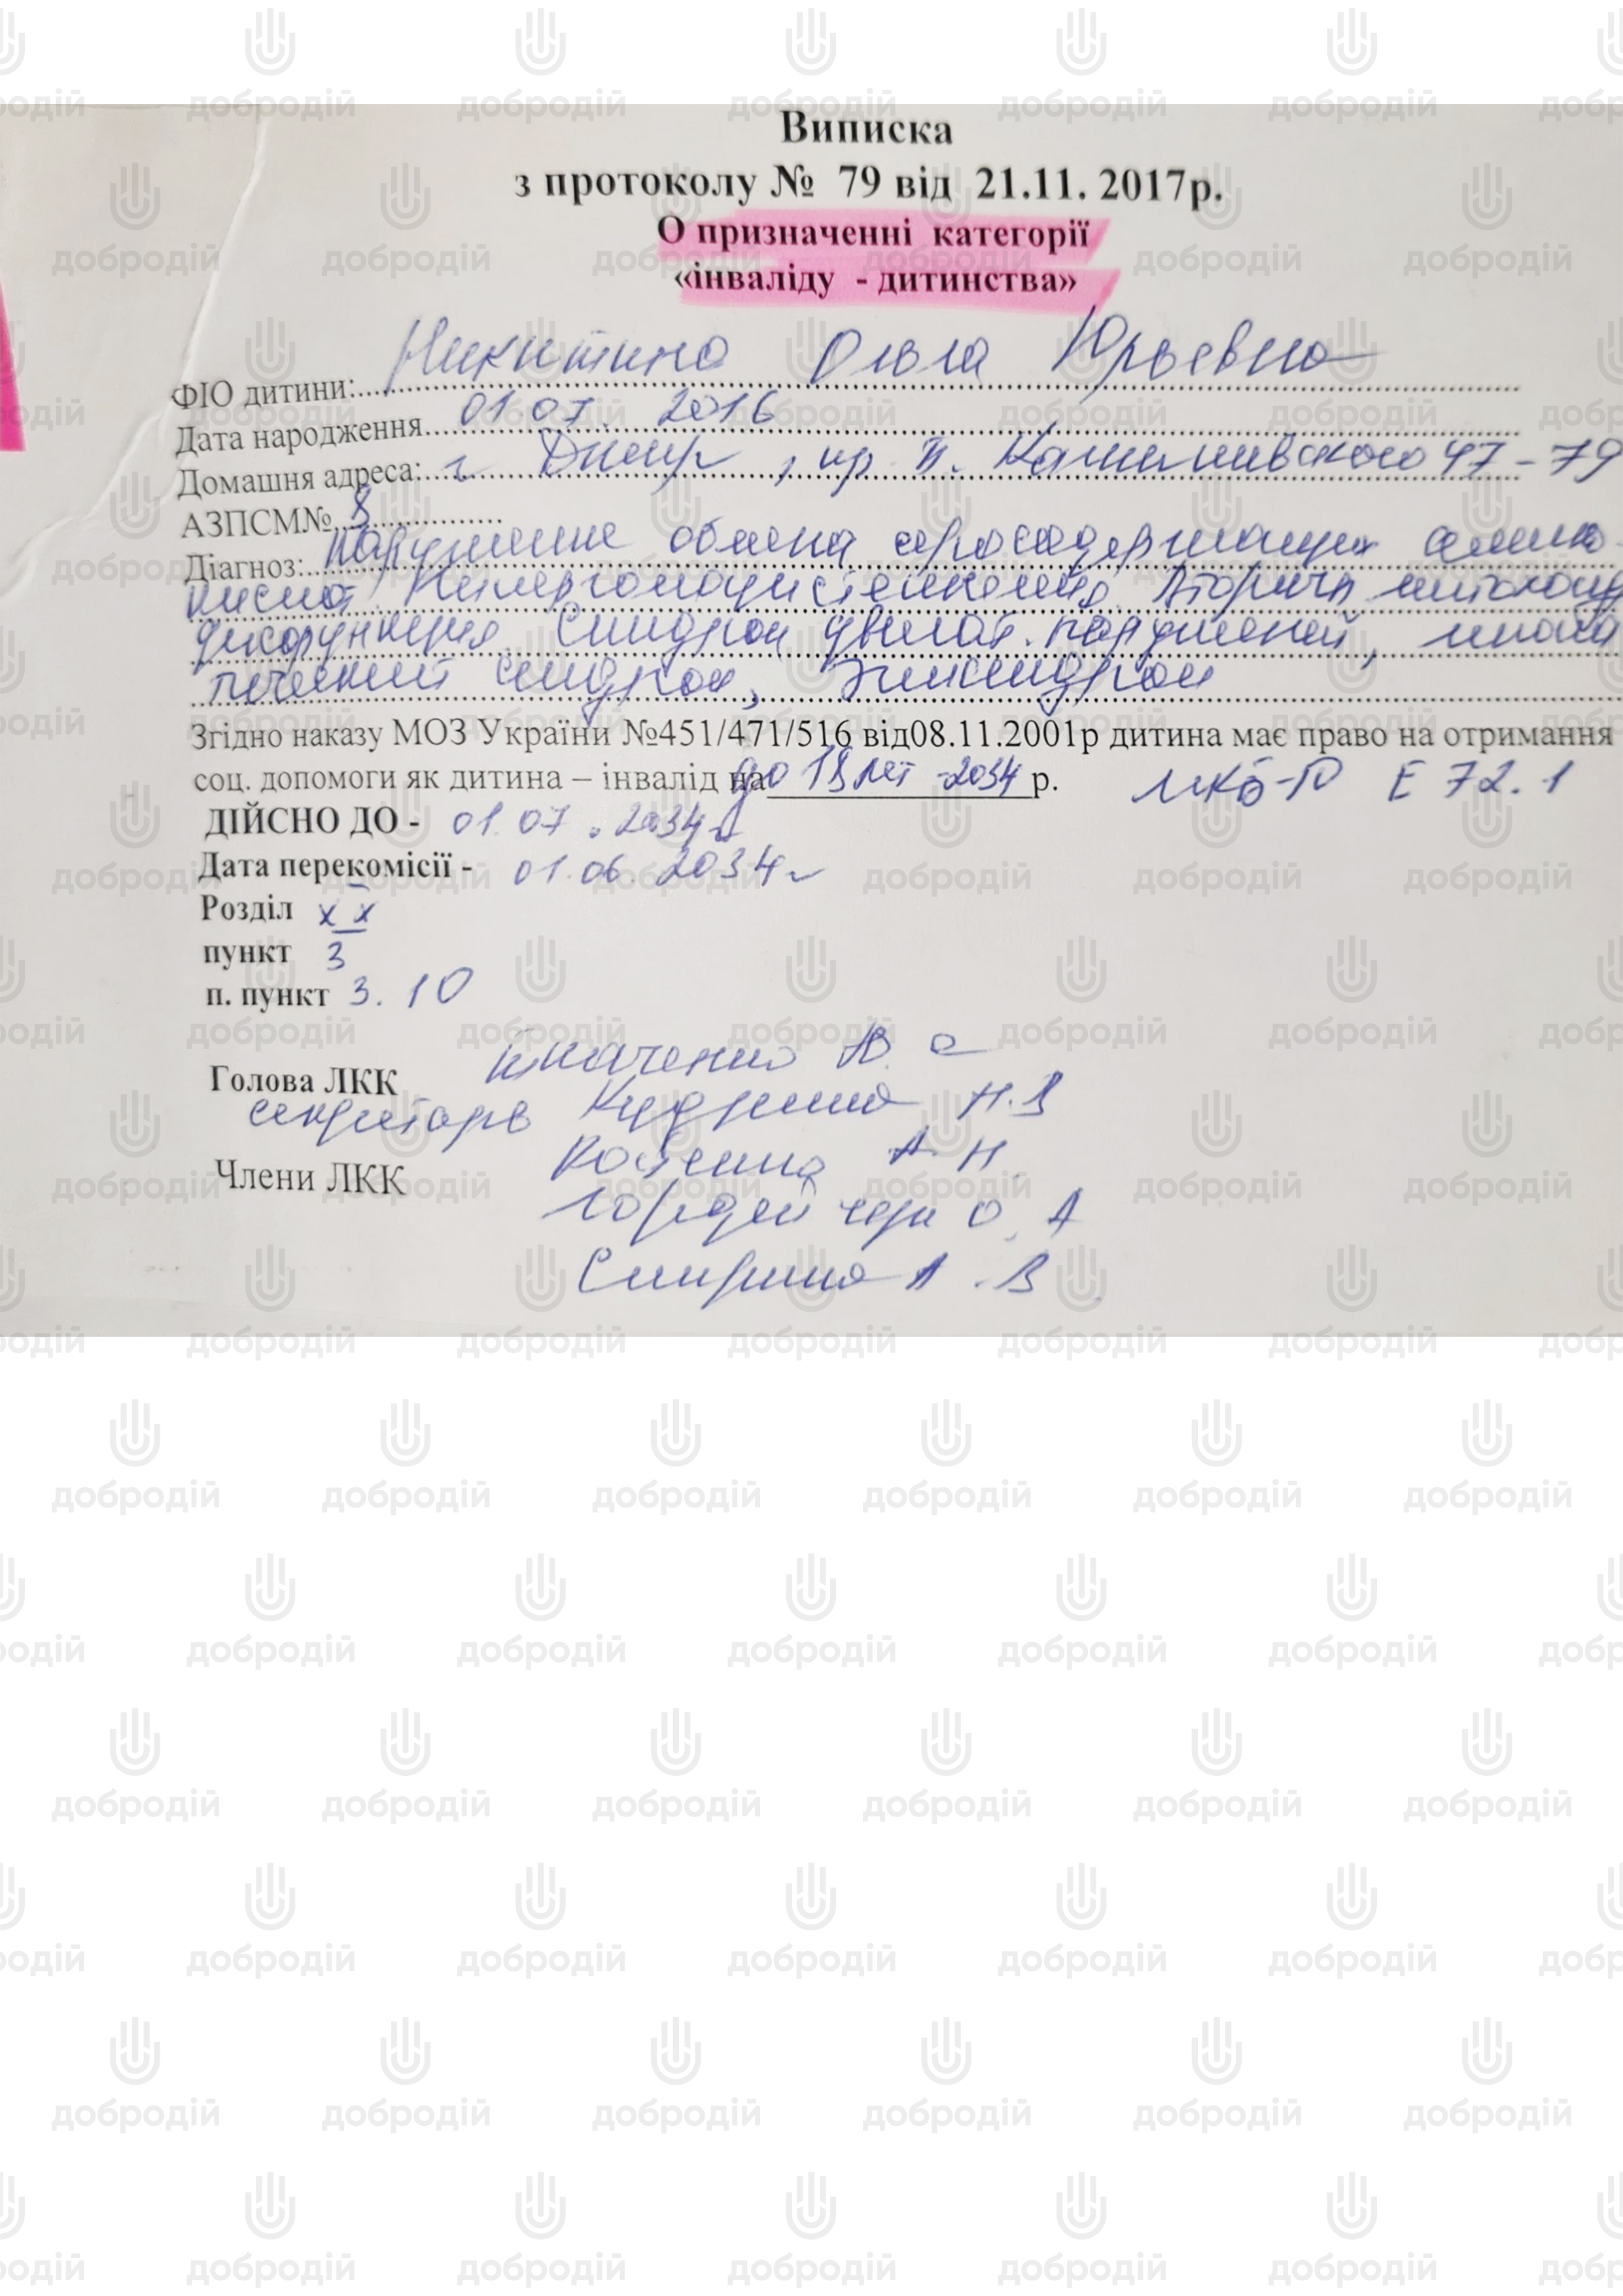 Виписка
з протоколу № 79 від 21.11. 2017р.
О призначенні категорії
«інваліду - дитинства»
ФІО дитини: Никитина Ольга Юрьевна
Дата народження 01.07. 2016
Домашня адреса: г. Днепр, пр. 47-79
АЗПСМ№ 8
Діагноз: Нарушение обмена серосодержащих амино-
кислот. Гипергомоцистеинемия. Вторичн. митохонд
дисфункция. Синдром двигат. нарушений,
печеночный синдром, эписиндром
Згідно наказу МОЗ України №451/471/516 від08.11.2001р дитина має право на отримання
соц. допомоги як дитина – інвалід на до 18 лет -2034 р. МКБ-10 Е 72.1
ДІЙСНО ДО - 01.07.2034г
Дата перекомісії - 01.06.2034г
Розділ XX
пункт 3
п. пункт 3.10
Голова ЛКК
секретарь Кудрина Н.В
Члени ЛКК А.Н.
О.А
А.В
добродій